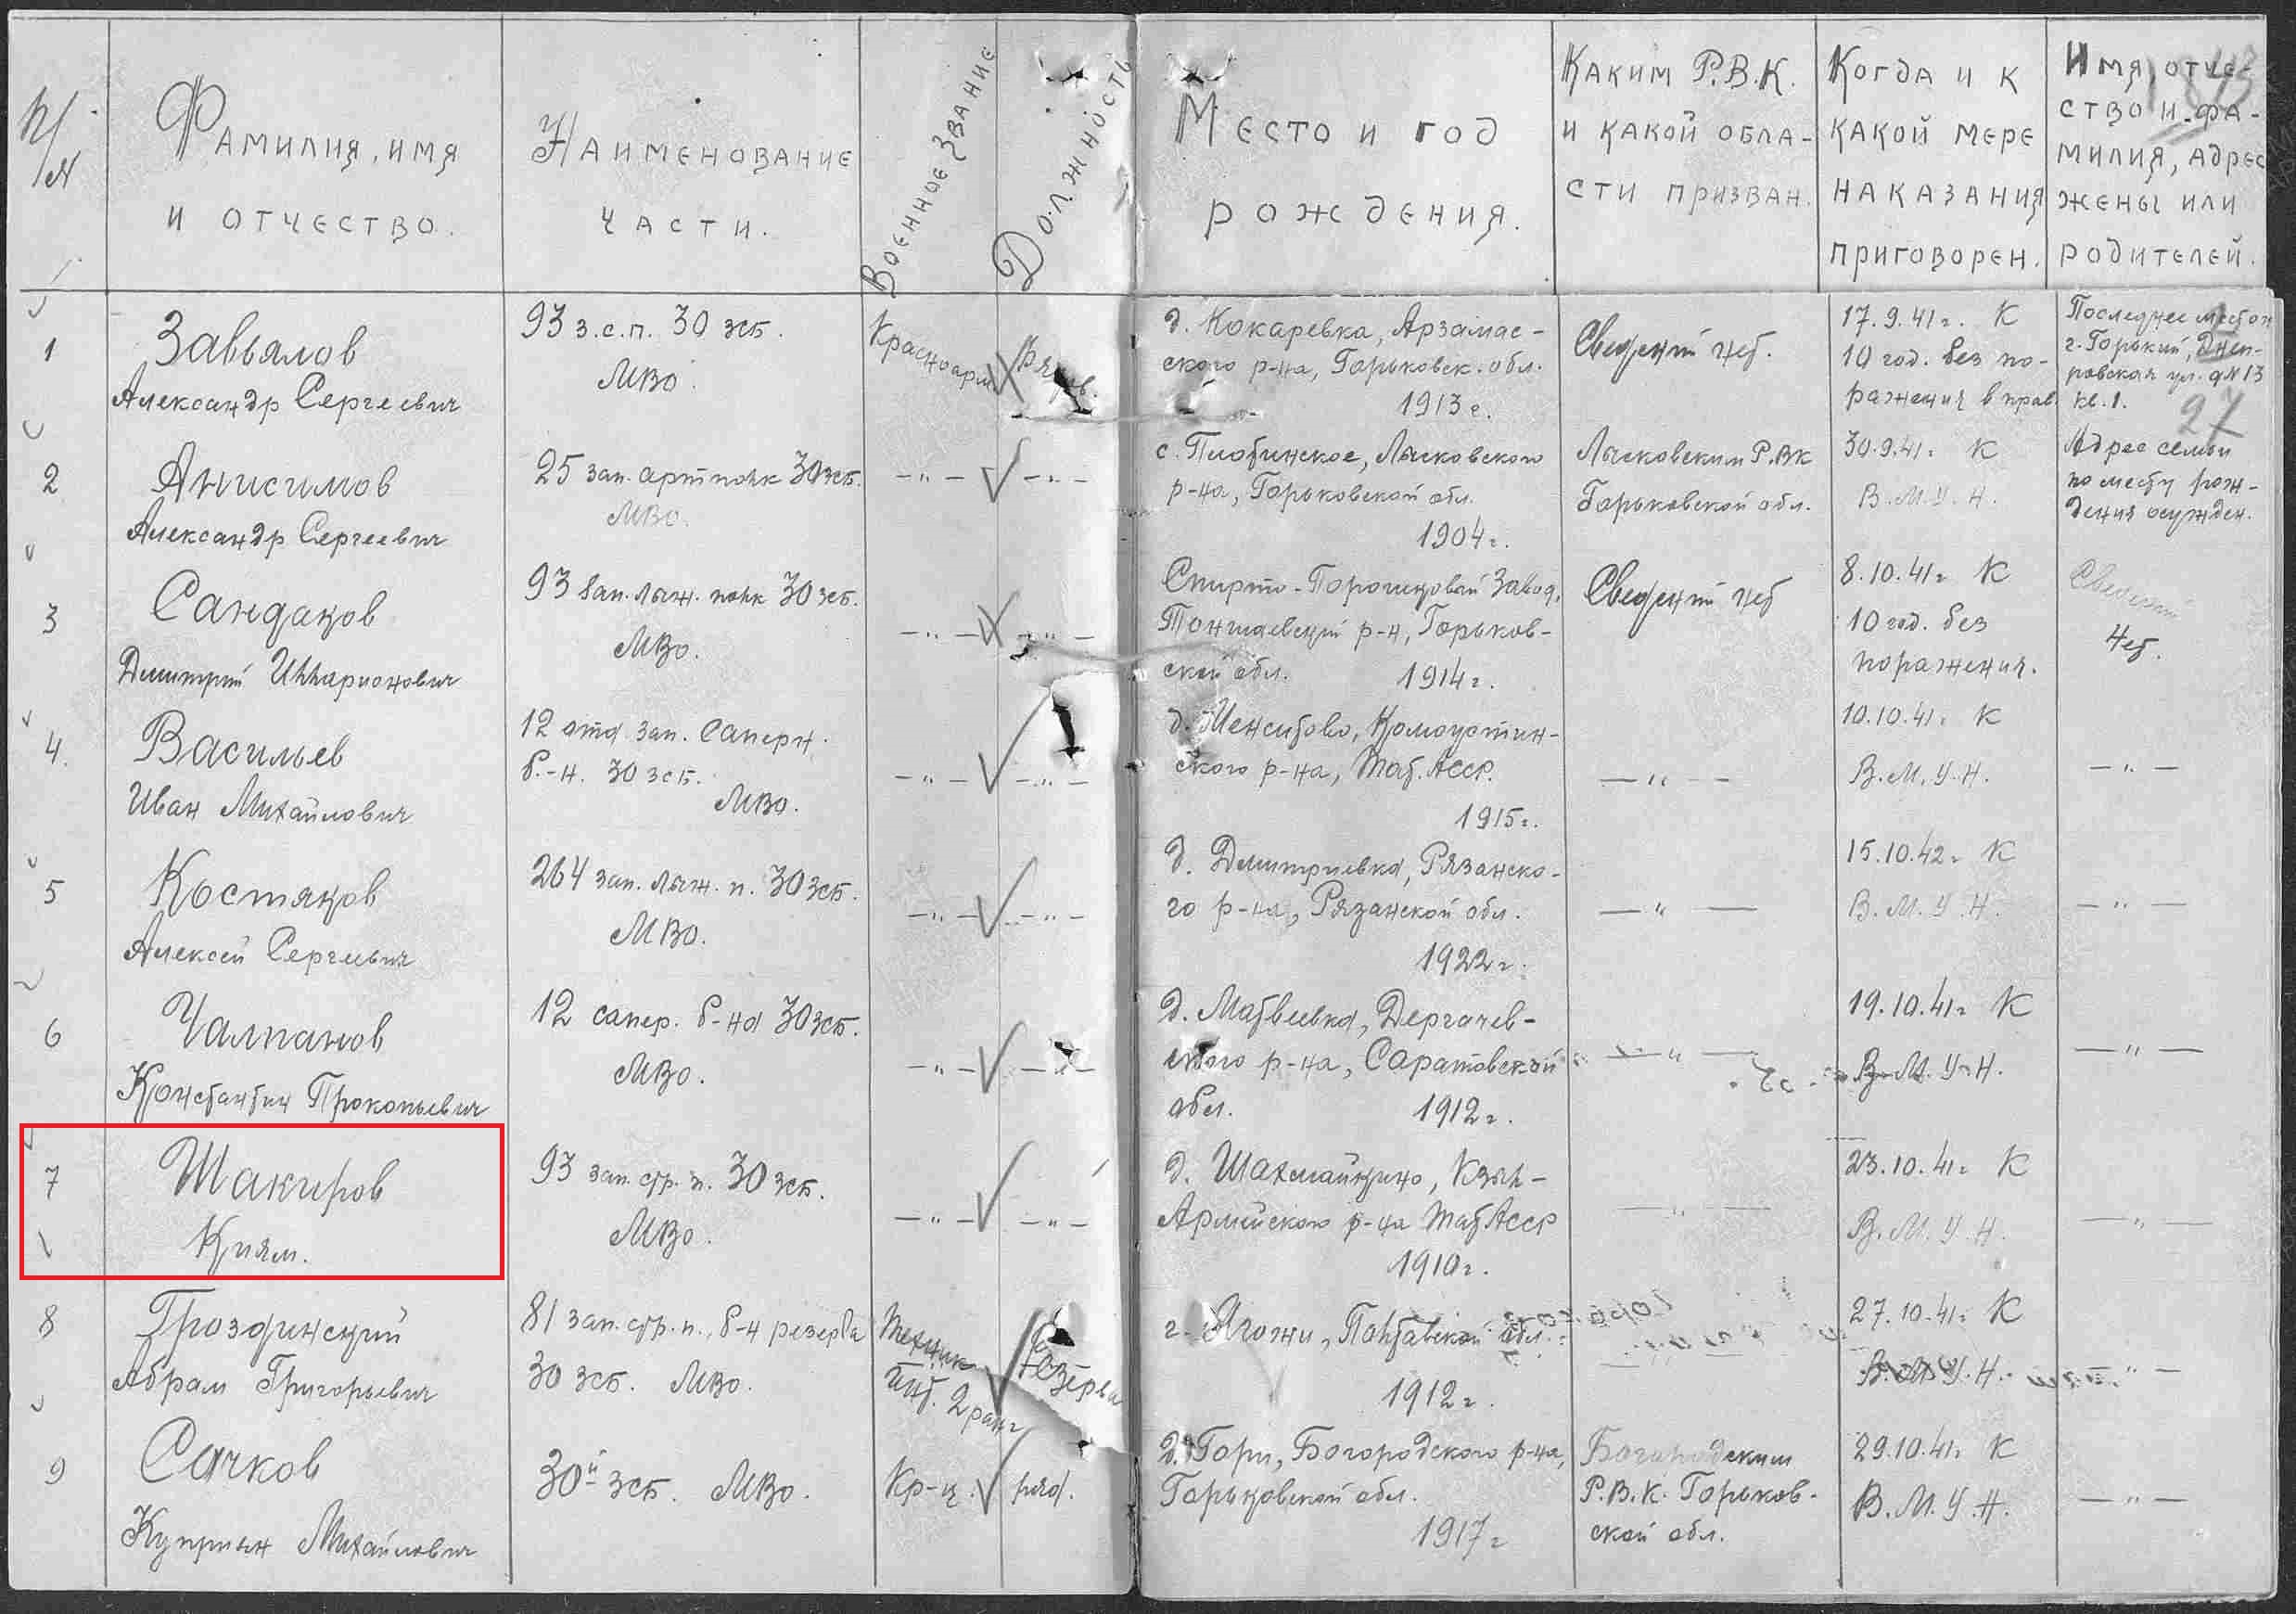 №
п/п
Фамилия, имя
и отчество.
Наименование
части.
Военное звание
Должность
Место и год
рождения.
Каким Р.В.К.
и какой обла-
сти призван.
Когда и к
какой мере
наказания
приговорен.
Имя, отче-
ство и фа-
милия, адрес
жены или
родителей.
1
Завьялов
Александр Сергеевич
93 з.с.п. 30 зсб.
МВО.
Красноарм.
Рядов.
д. Кокаревка, Арзамас-
ского р-на, Горьковск. обл.
1913 г.
Сведений нет.
17.9.41г. К
10 год. без по-
ражения в прав.
Последнее место
г. Горький, Днеп-
ровская ул. д №13
кв. 1.
27
2
Анисимов
Александр Сергеевич
25 зап. артполк 30 зсб.
МВО.
— " —
— " —
с. Лысковского
р-на, Горьковской обл.
1904г.
Лысковским Р.ВК
Горьковской обл.
30.9.41г. К
В.М.У.Н.
Адрес семьи
по месту рож-
дения осужден.
3
Сандаков
Дмитрий Илларионович
93 зап. лыж. полк 30 зсб.
МВО.
— " —
— " —
Спирто-Порошковый Завод,
Тоншаевский р-н, Горьков-
ской обл. 1914г.
Сведений нет
8.10.41г К
10 год. без
поражения.
Сведений
нет.
4.
Васильев
Иван Михайлович
12 отд зап. Саперн.
б.-н. 30 зсб.
МВО.
— " —
— " —
д. Менситово, Камоустин-
ского р-на, Тат. АССР.
1915г.
— " —
10.10.41г К
В.М.У.Н.
— " —
5
Костяков
Алексей Сергеевич
264 зап. лыж. п. 30 зсб.
МВО.
— " —
— " —
д. Дмитриевка, Рязанско-
го р-на, Рязанской обл.
1922г.
— " —
15.10.42г К
В.М.У.Н.
— " —
6
Чалпанов
Константин Прокопьевич
12 сапер. б-на 30 зсб.
МВО.
— " —
— " —
д. Матвеевка, Дергачев-
ского р-на, Саратовской
обл. 1912г.
— " —
19.10.41г К
В.М.У.Н.
— " —
7
Шакиров
Киям.
93 зап. стр. п. 30 зсб.
МВО.
— " —
— " —
д. Шахмайкино, Кзыл-
Армейского р-на ТатАССР
1910г.
— " —
23.10.41г К
В.М.У.Н.
— " —
8
Гроздинский
Абрам Григорьевич
81 зап. стр. п., б-н резерва
30 зсб. МВО.
Техник
инт. 2 ранг
Резерва
Полтавской обл.
1912г.
27.10.41г К
В.М.У.Н.
— " —
9
Сачков
Куприян Михайлович
30й зсб. МВО.
Кр-ц.
ряд.
д. Гори, Богородского р-на,
Горьковской обл.
1917г
Богородским
Р.В.К. Горьков-
ской обл.
29.10.41г К
В.М.У.Н.
— " —